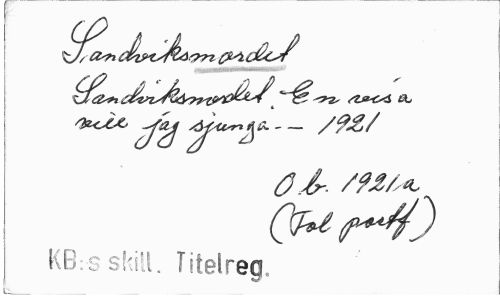 Sandviksmordet
Sandviksmordet. En visa
vill jag sjunga.-- 1921
O b. 1921 a
(Fol portf)
KB:s skill. Titelreg.